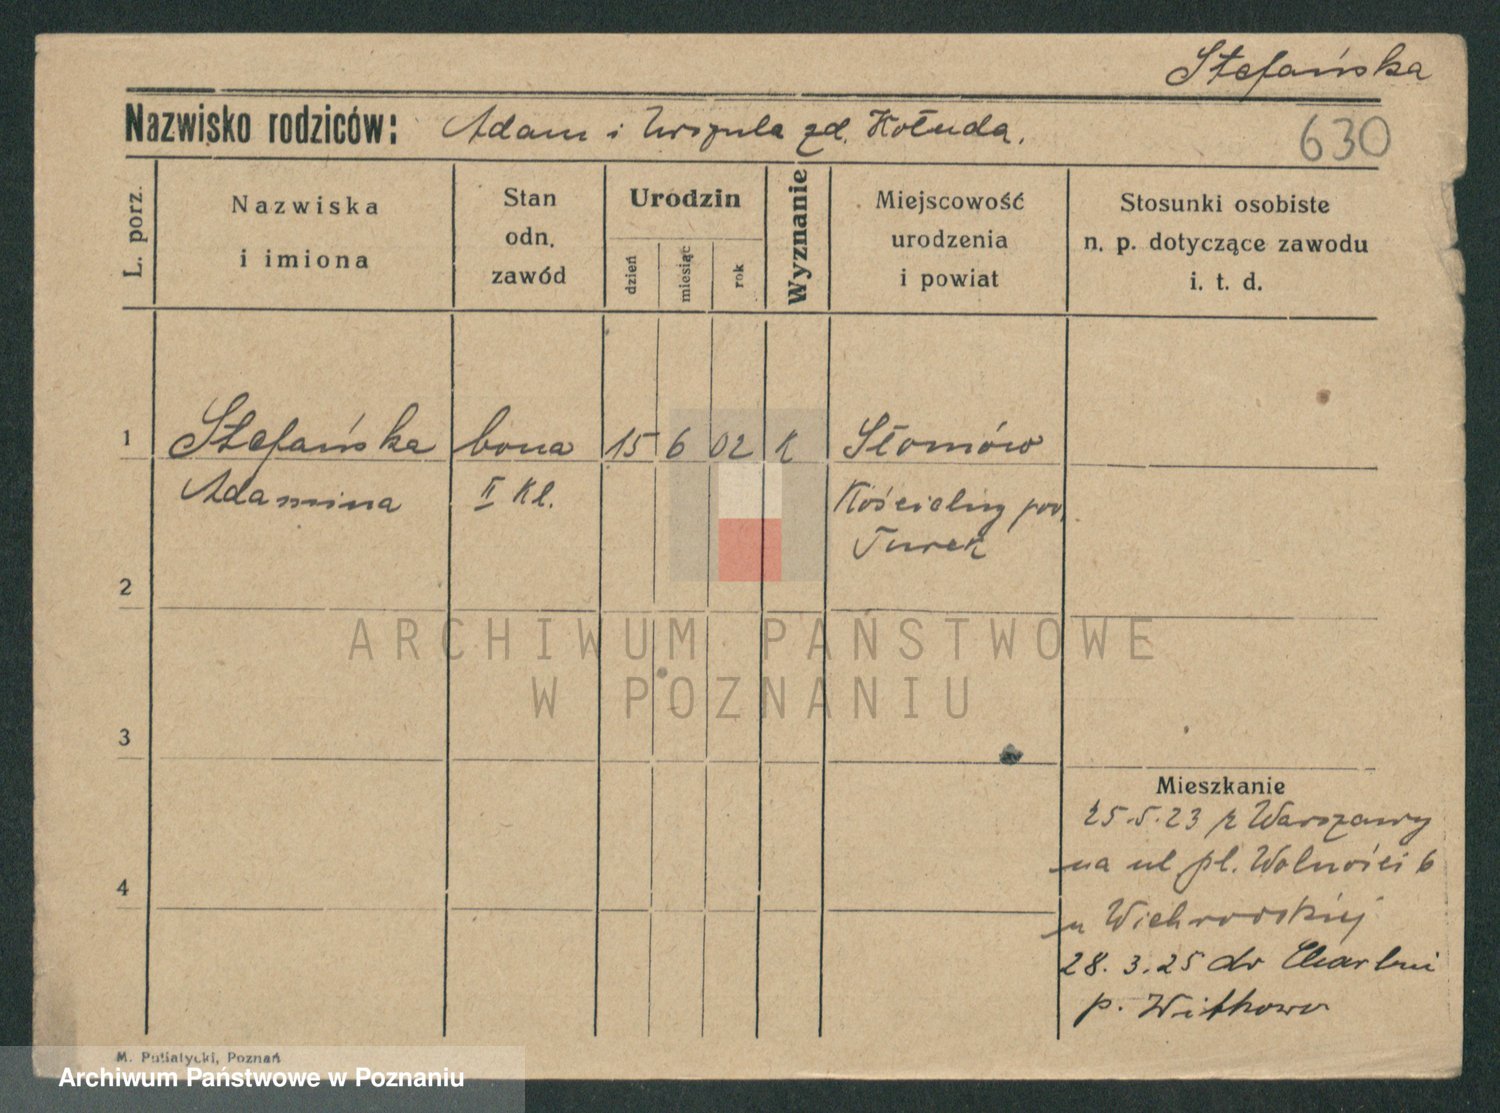 Stefańska
Nazwisko rodziców: Adam i Urszula zd. Kołuda.
630
L. porz.
Nazwiska
i imiona
Stan
odn.
zawód
Urodzin
dzień
miesiąc
rok
Wyznanie
Miejscowość
urodzenia
i powiat
Stosunki osobiste
n. p. dotyczące zawodu
i. t. d.
1 Stefańska bona 15 6 02 K Słomów
Adamina II Kl. Kościelny pow.
Turek
2
ARCHIWUM PAŃSTWOWE
W POZNANIU
3
Mieszkanie
25.5.23 z Warszawy
na ul pl. Wolności 6
4
u
28.3.25 do
p. Witkowo
M. Putiatycki, Poznań
Archiwum Państwowe w Poznaniu